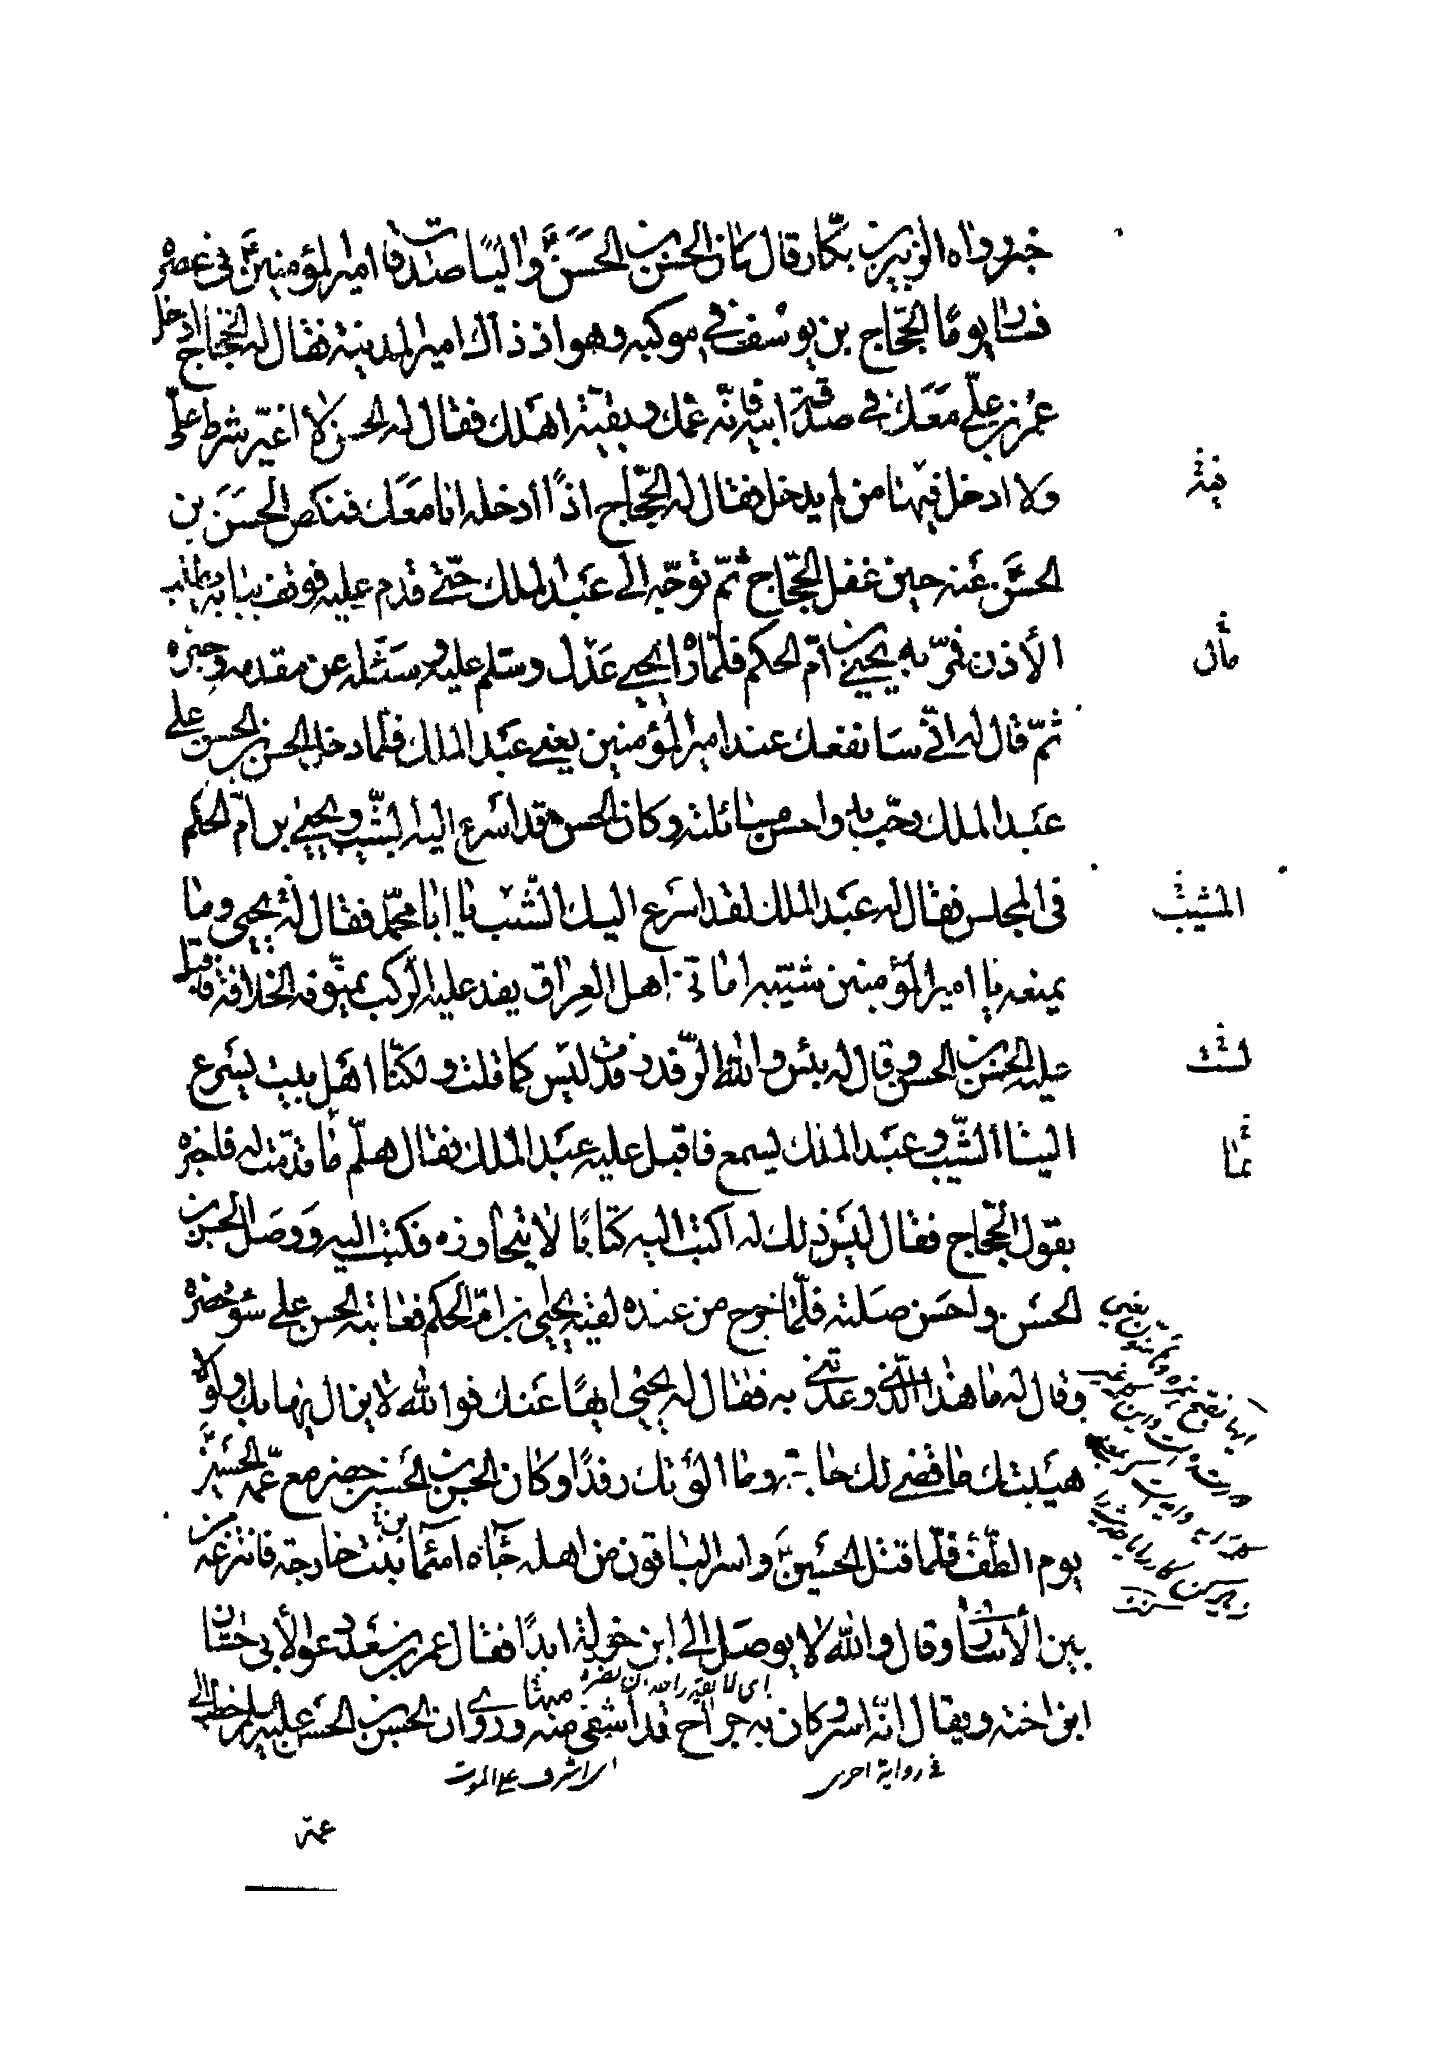 خبر رواه الزبير بن بكار قال كان الحسن بن الحسن ع واليا صدقات امير المؤمنين ع في عصره
فسار يوما الحجاج بن يوسف في موكبه وهو اذ ذاك امير المدينة فقال له الحجاج ادخل
عمر بن علي معك في صدقة ابيه فانه عمك وبقية اهلك فقال له الحسن لا اغير شرط علي
ولا ادخل فيها من لم يدخل فقال له الحجاج اذا ادخله انا معك فنكص الحسن بن
الحسن ع عنه حين غفل الحجاج ثم توجه الى عبد الملك حتى قدم عليه فوقف ببابه يطلب
الأذن فمر به يحيى بن أم الحكم فلما رآه يحيى عدل وسلم عليه وسئله عن مقدمه وخبره
ثم قال له اني سانفعك عند امير المؤمنين يعني عبد الملك فلما دخل الحسن بن الحسن على
عبد الملك رحب به واحسن مسائلته وكان الحسن قد اسرع اليه الشيب ويحيى بن ام الحكم
في المجلس فقال له عبد الملك لقد اسرع اليك الشيب يا ابا محمد فقال له يحيى وما
يمنعه يا امير المؤمنين شيبه اماني اهل العراق يفد عليه الركب يمنونه الخلافة فاقبل
عليه الحسن بن الحسن وقال له بئس والله الرفد رفدت ليس كما قلت ولكنا اهل بيت يسرع
الينا الشيب وعبد الملك يسمع فاقبل عليه عبد الملك فقال هلم ما قدمت له فاخبره
بقول الحجاج فقال ليس ذلك له اكتب اليه كتابا لا يتجاوزه فكتب اليه ووصل الحسن بن
الحسن واحسن صلته فلما خرج من عنده لقيه يحيى بن ام الحكم فعاتبه الحسن على سوء محضره
وقال له ما هذا الذي وعدتني به فقال له يحيى ايها عنك فوالله لا يزال يهابك ولولا
هيبتك ما قضى لك حاجة وما الوتك رفدا وكان الحسن بن الحسن حضر مع عمه الحسين ع
يوم الطف فلما قتل الحسين ع واسر الباقون من اهله جآءه اسمآء بن بنت خارجة فانتزعه من
بين الأسارى وقال والله لا يوصل الى ابن خولة ابدا فقال عمر بن سعد دعوا لأبي حسان
ابن اخته ويقال انه اسر وكان به جراح قد اشفى منه وروى ان الحسن بن الحسن عليه السلم خطب الى
في رواية اخرى
اى اشرف على الموت
عمه
المشيب
لست